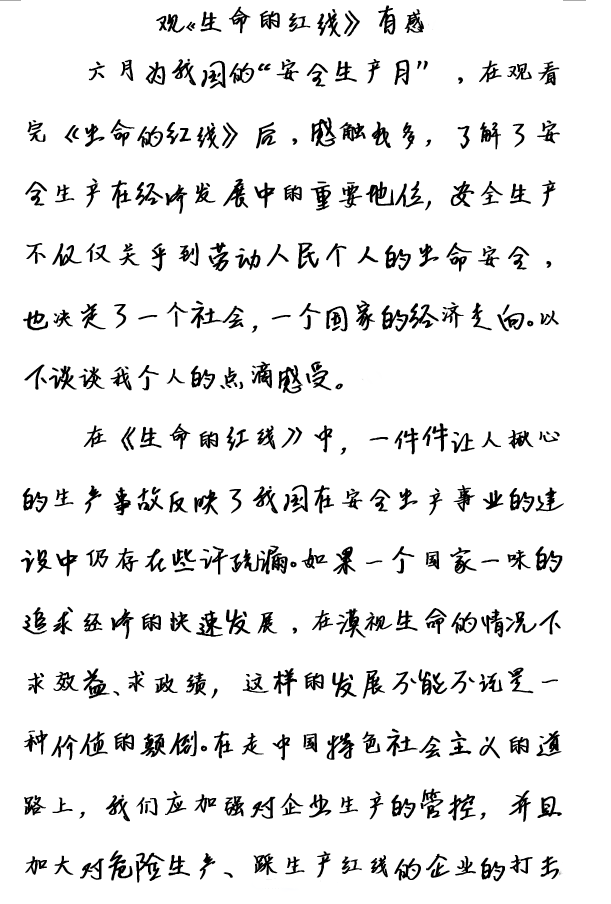 观《生命的红线》有感
六月为我国的“安全生产月”，在观看
完《生命的红线》后，感触我多，了解了安
全生产在经济发展中的重要地位，安全生产
不仅仅关乎到劳动人民个人的生命安全，
也决定了一个社会，一个国家的经济走向。以
下谈谈我个人的点滴感受。
在《生命的红线》中，一件件让人揪心
的生产事故反映了我国在安全生产事业的建
设中仍存在些许疏漏。如果一个国家一味的
追求经济的快速发展，在漠视生命的情况下
求效益、求政绩，这样的发展不能不说是一
种价值的颠倒。在走中国特色社会主义的道
路上，我们应加强对企业生产的管控，并且
加大对危险生产、踩生产红线的企业的打击